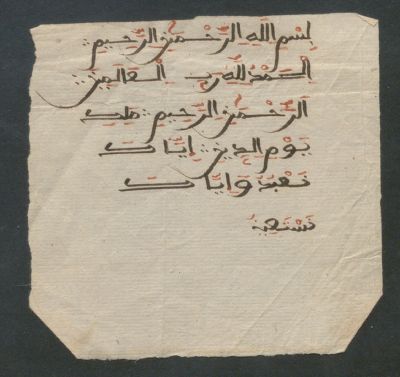 بِسْمِ اللَّهِ الرَّحْمَٰنِ الرَّحِيمِ
الْحَمْدُ لِلَّهِ رَبِّ الْعَالَمِينَ
الرَّحْمَٰنِ الرَّحِيمِ مَلِكِ
يَوْمِ الدِّينِ إِيَّاكَ
نَعْبُدُ وَإِيَّاكَ
نَسْتَعِينُ